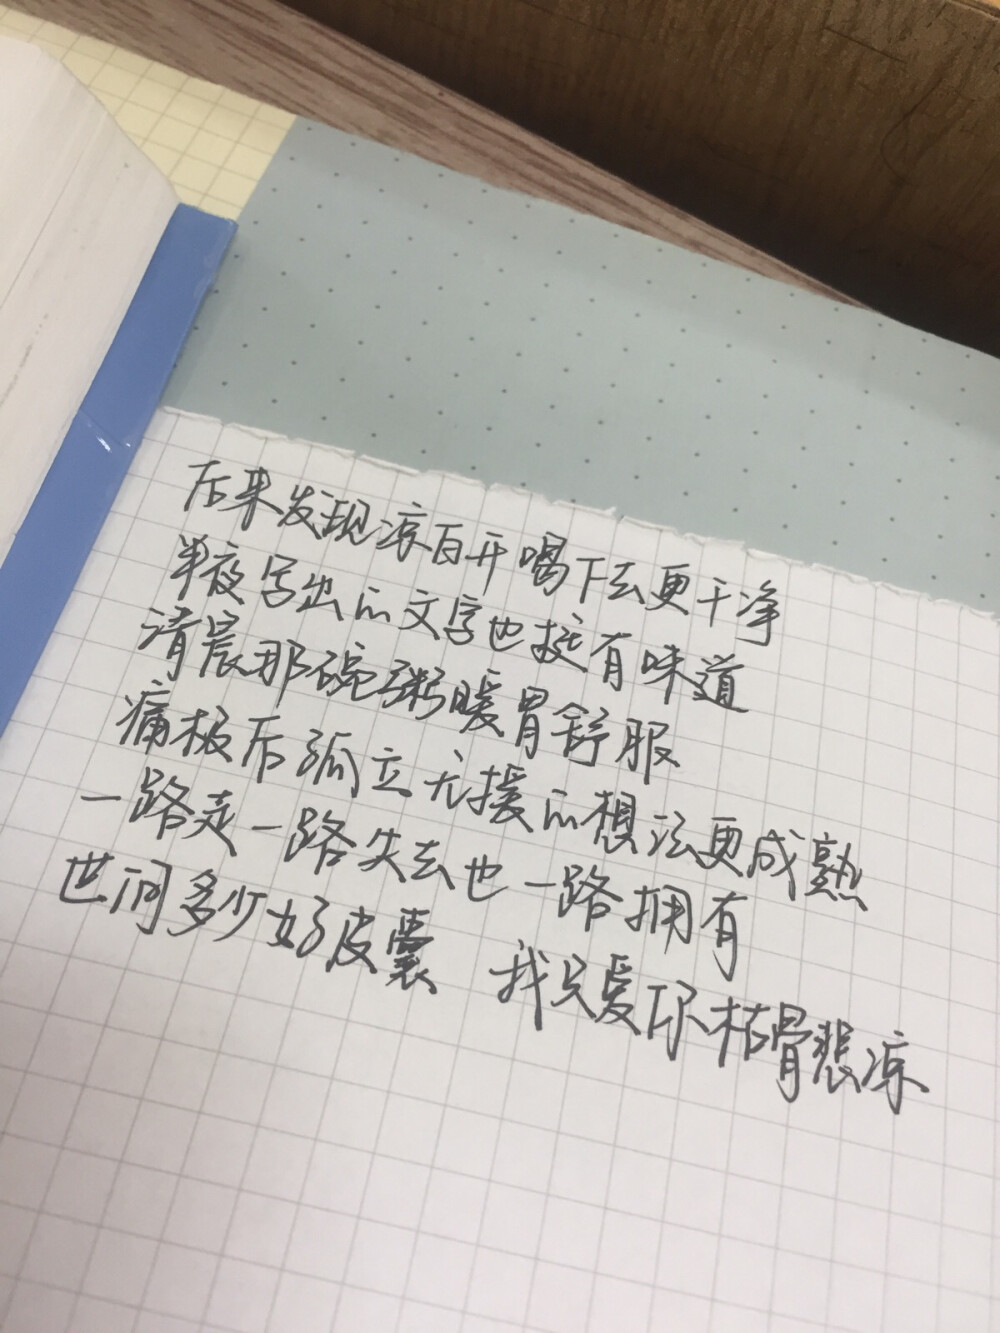 后来发现凉白开喝下去更干净
半夜写出的文字也挺有味道
清晨那碗粥暖胃舒服
痛极后孤立无援的想法更成熟
一路走一路失去也一路拥有
世间多少好皮囊 我只爱坏枯骨悲凉